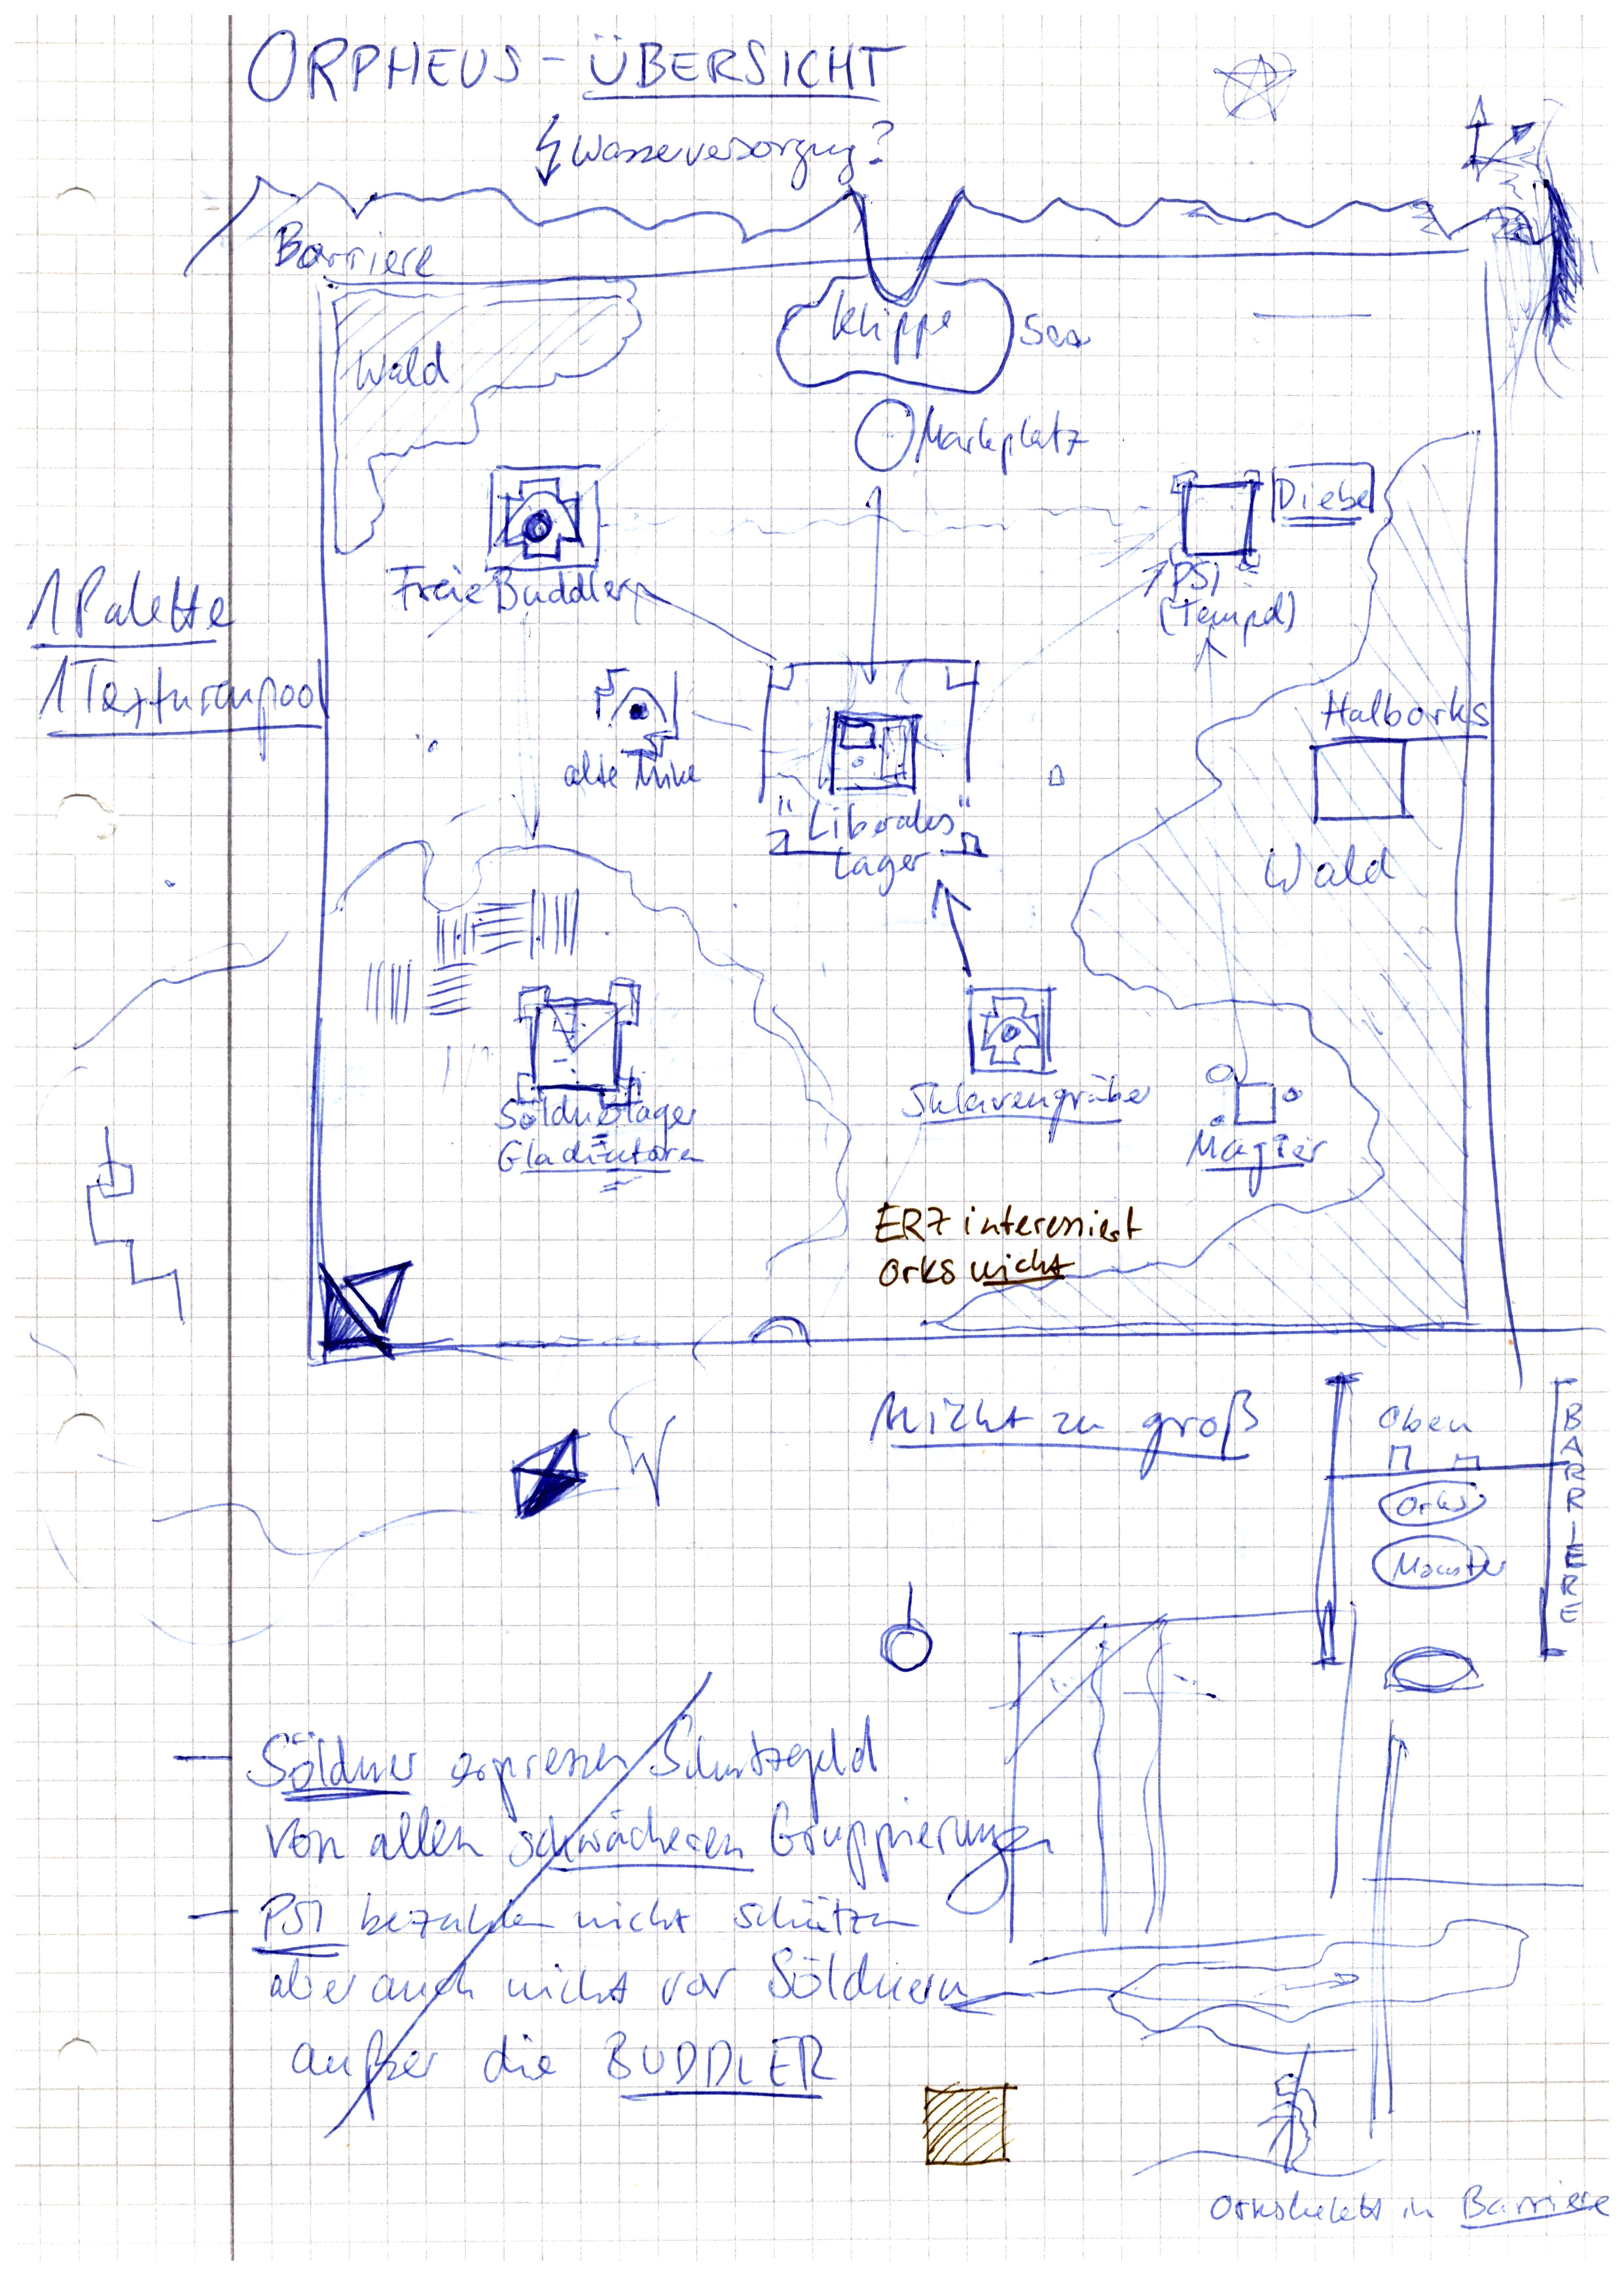 ORPHEUS - ÜBERSICHT
Wasserversorgung?
Barriere
Klippe
See
Wald
Markplatz
Diebe
Freie Buddler
PSI
(Tempel)
1 Palette
1 Texturenpool
alte Mine
Halborks
"Liberales"
Lager
Wald
Söldnerlager
Gladiatoren
Sklavengräber
Magier
ERZ interessiert
Orks nicht
Nicht zu groß
Oben
Orks
Monster
BARRIERE
- Söldner erpressen Schutzgeld
von allen schwächeren Gruppierungen
- PSI bezahlen nicht schützen
aber auch nicht vor Söldnern
außer die BUDDLER
Orkskelett in Barriere